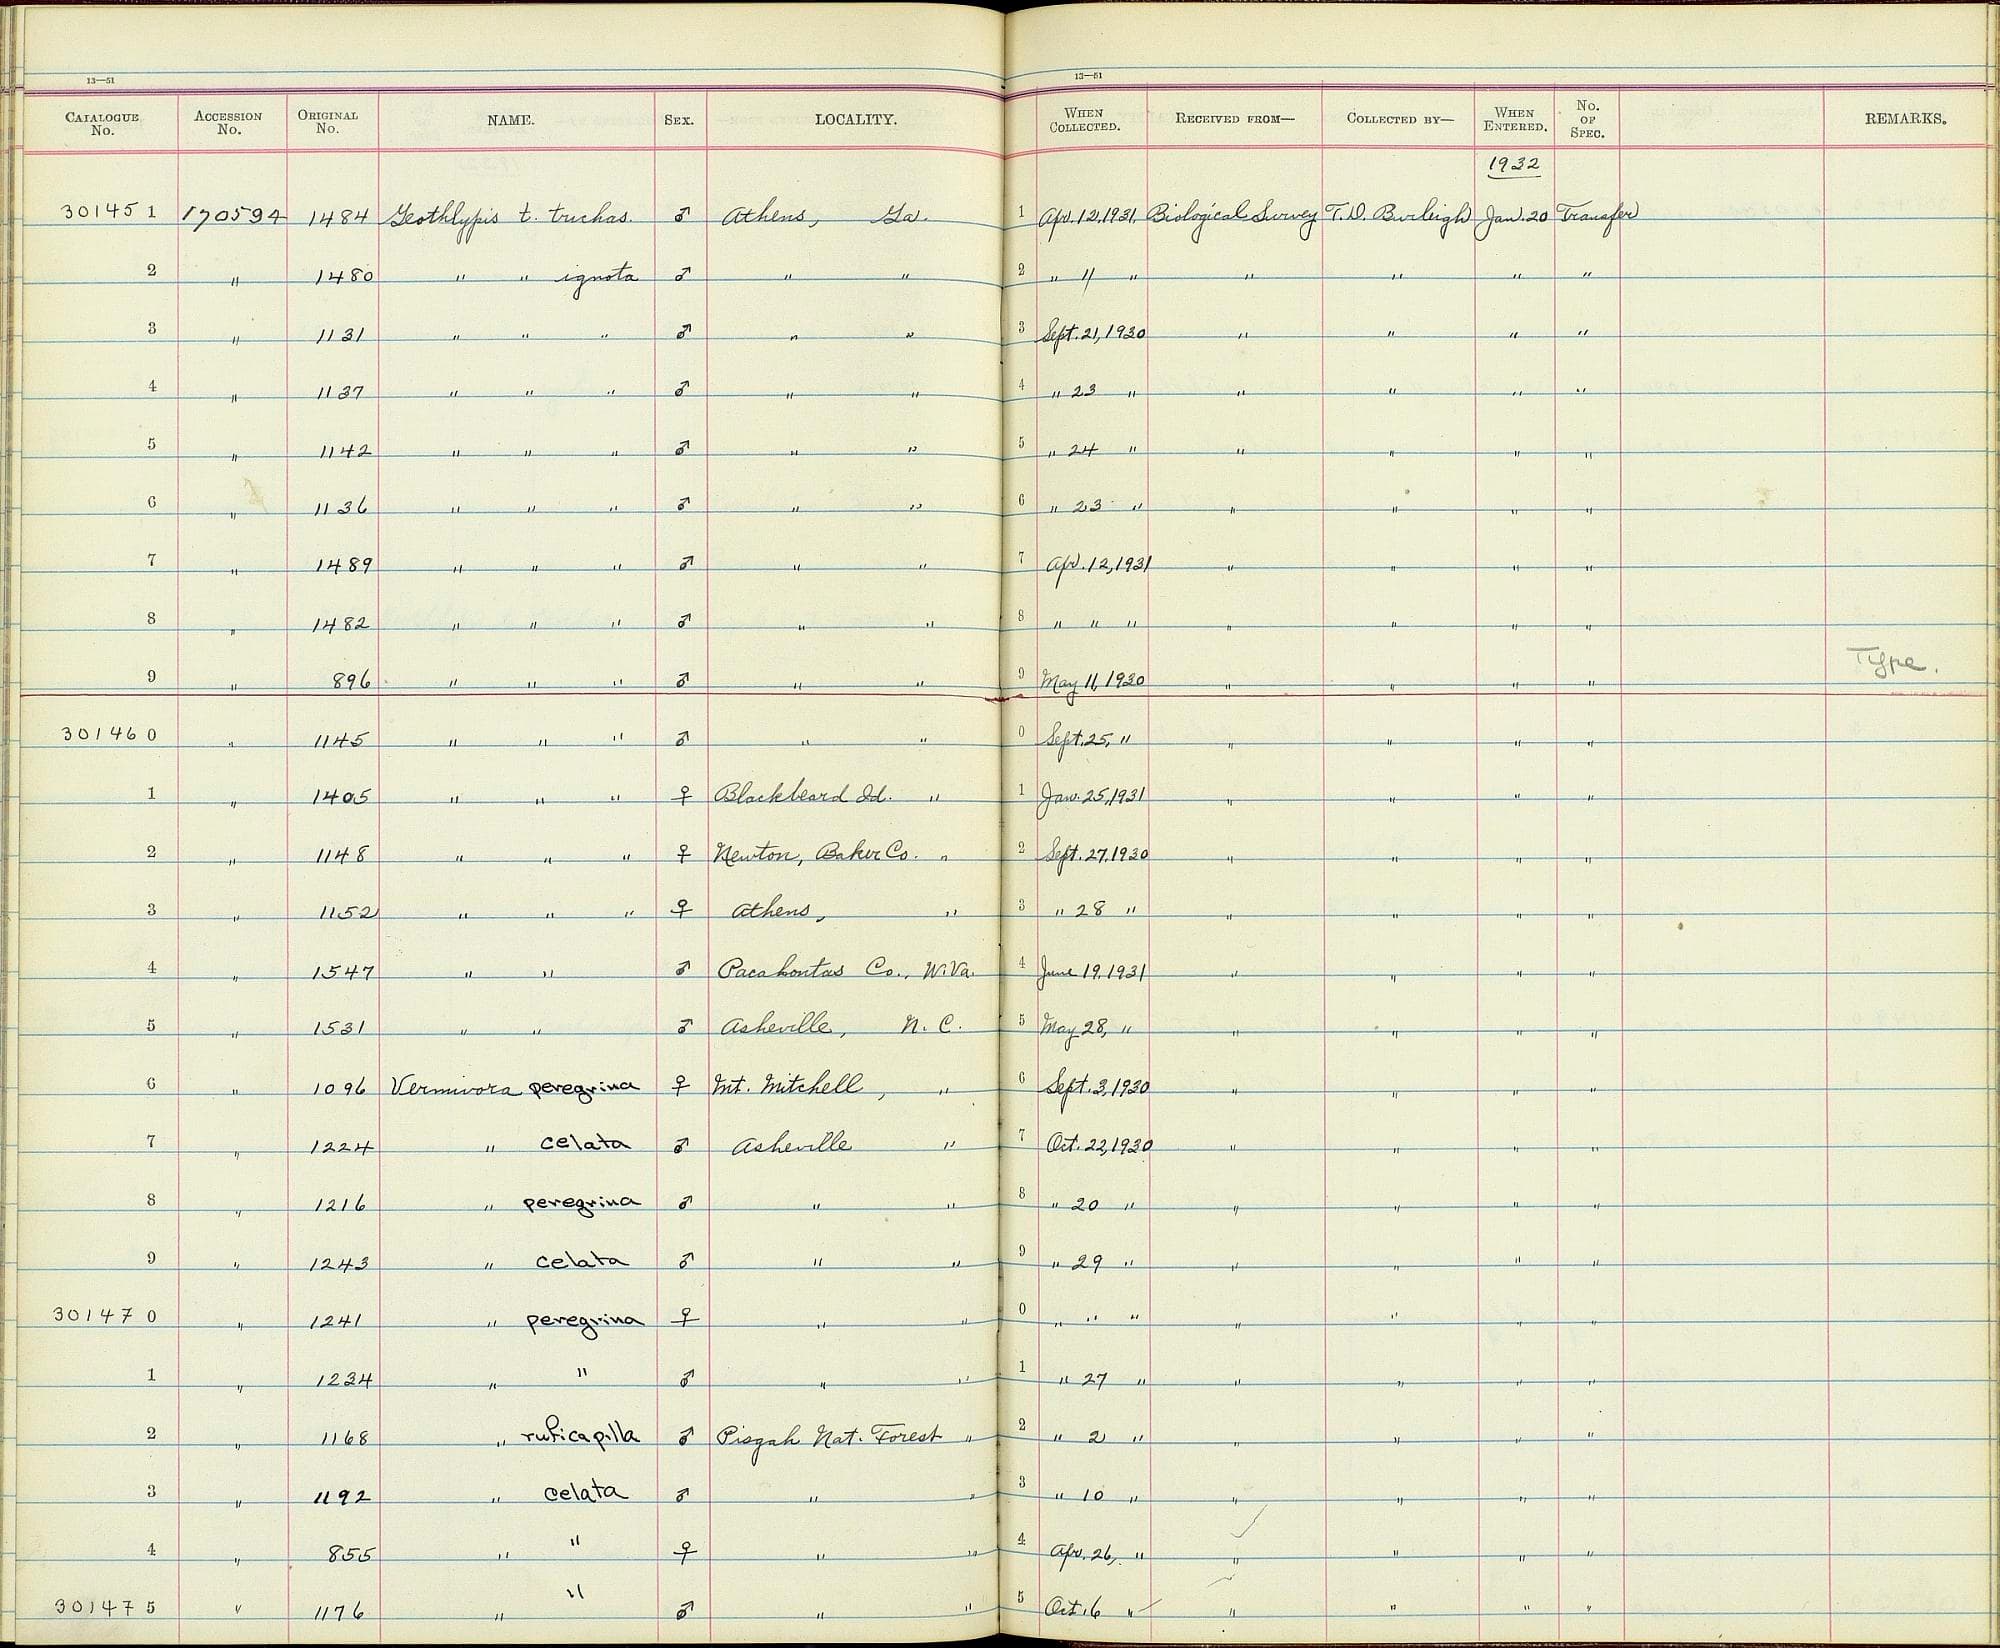 13—51 13—51
CATALOGUE No. ACCESSION No. ORIGINAL No. NAME. SEX. LOCALITY. WHEN COLLECTED. RECEIVED FROM— COLLECTED BY— WHEN ENTERED. No. OF SPEC. REMARKS.
1932
301451 170594 1484 Geothlypis t. trichas. ♂ Athens, Ga. 1 Apr. 12, 1931 Biological Survey T. D. Burleigh Jan. 20 Transfer
2 " 1480 " " ignota ♂ " " 2 " 11 " " " " "
3 " 1131 " " " ♂ " " 3 Sept. 21, 1930 " " " "
4 " 1137 " " " ♂ " " 4 " 23 " " " " "
5 " 1142 " " " ♂ " " 5 " 24 " " " " "
6 " 1136 " " " ♂ " " 6 " 23 " " " " "
7 " 1489 " " " ♂ " " 7 Apr. 12, 1931 " " " "
8 " 1482 " " " ♂ " " 8 " " " " " " "
9 " 896 " " " ♂ " " 9 May 11, 1930 " " " " Type.
301460 " 1145 " " " ♂ " " 0 Sept. 25, " " " " "
1 " 1405 " " " ♀ Blackbeard Id. " 1 Jan. 25, 1931 " " " "
2 " 1148 " " " ♀ Newton, Baker Co. " 2 Sept. 27, 1930 " " " "
3 " 1152 " " " ♀ Athens, " 3 " 28 " " " " "
4 " 1547 " " ♂ Pocahontas Co., W. Va. 4 June 19, 1931 " " " "
5 " 1531 " " ♂ Asheville, N. C. 5 May 28, " " " " "
6 " 1096 Vermivora peregrina ♀ Mt. Mitchell, " 6 Sept. 3, 1930 " " " "
7 " 1224 " celata ♂ Asheville " 7 Oct. 22, 1930 " " " "
8 " 1216 " peregrina ♂ " " 8 " 20 " " " " "
9 " 1243 " celata ♂ " " 9 " 29 " " " " "
301470 " 1241 " peregrina ♀ " " 0 " " " " " " "
1 " 1234 " " ♂ " " 1 " 27 " " " " "
2 " 1168 " ruficapilla ♂ Pisgah Nat. Forest " 2 " 2 " " " " "
3 " 1192 " celata ♂ " " 3 " 10 " " " " "
4 " 855 " " ♀ " " 4 Apr. 26, " " " " "
301475 " 1176 " " ♂ " " 5 Oct. 6 " " " " "